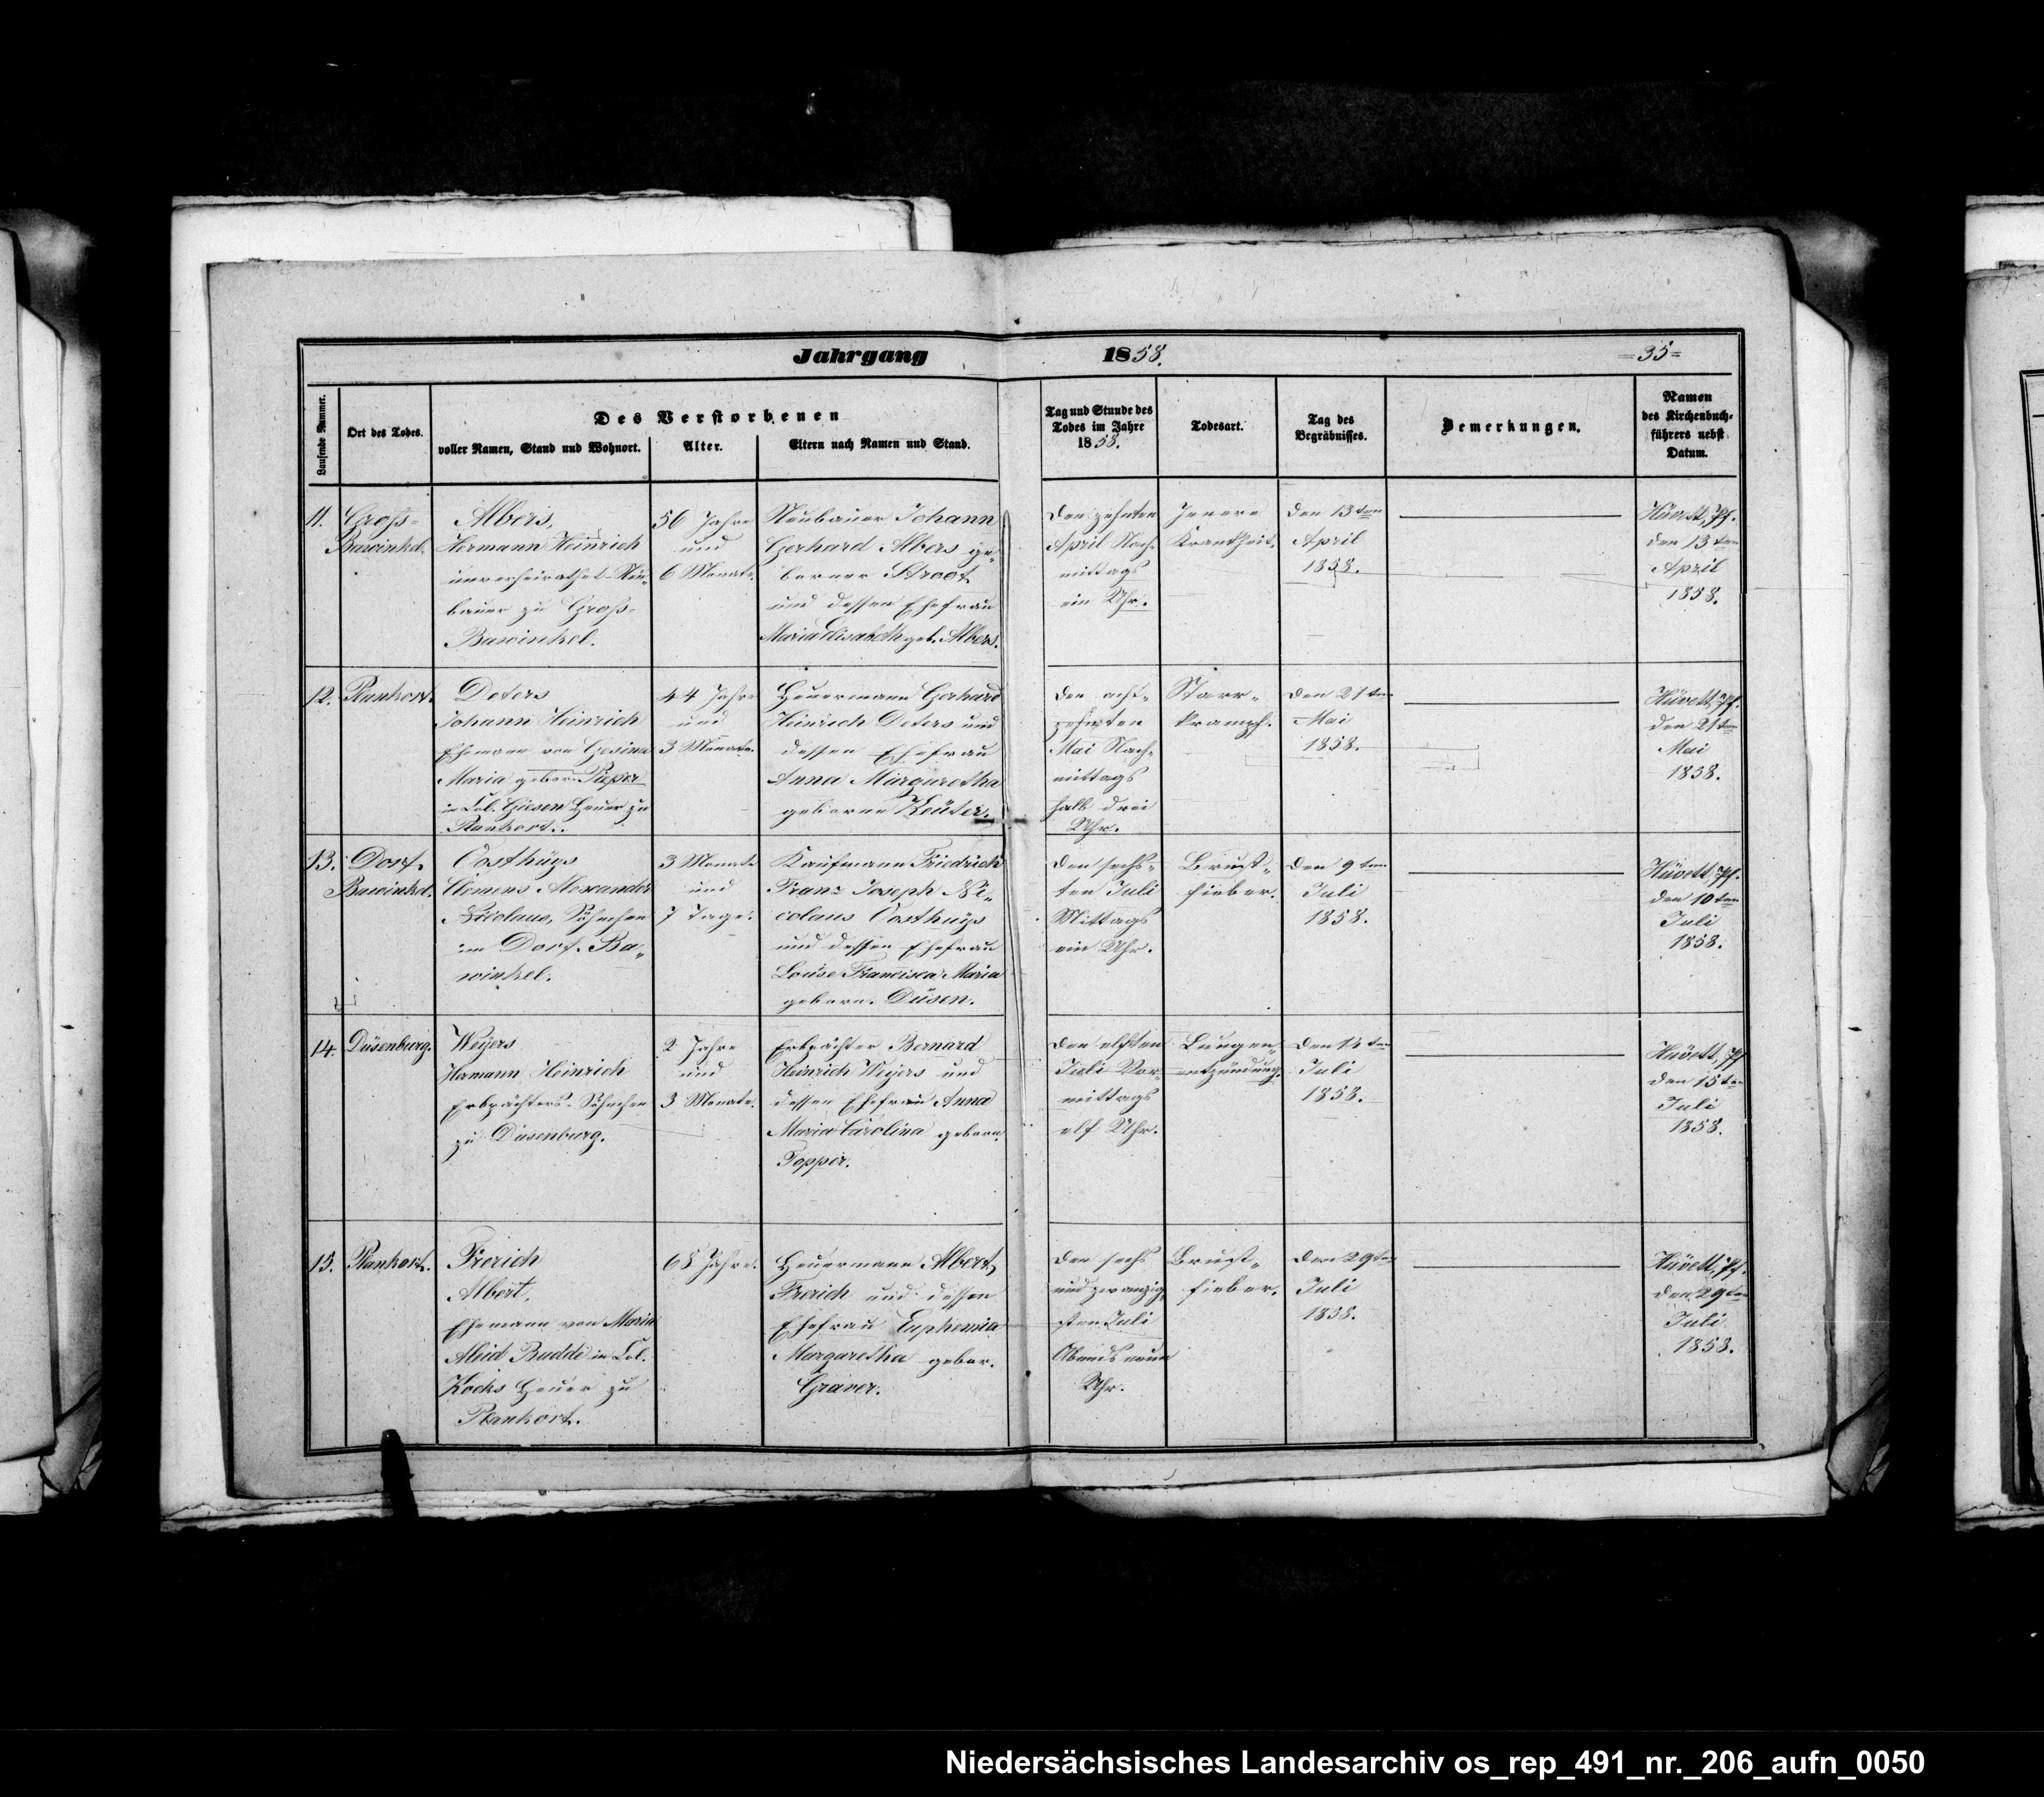 Jahrgang 1858. =35=
Laufende Nummer.
Ort des Todes.
Des Verstorbenen
voller Namen, Stand und Wohnort.
Alter.
Eltern nach Namen und Stand.
Tag und Stunde des
Todes im Jahre
1858.
Todesart.
Tag des
Begräbnisses.
Bemerkungen.
Namen
des Kirchenbuch-
führers nebst
Datum.
11.
Groß-
Bawinkel.
Albers,
Hermann Heinrich
unverheirathet Neu-
bauer zu Groß-
Bawinkel.
56 Jahre
und
6 Monate.
Neubauer Johann
Gerhard Albers ge-
borner Stroot
und dessen Ehefrau
Maria Elisabeth geb. Albers.
Den zehnten
April Nach-
mittags
ein Uhr.
Innere
Krankheit.
Den 13ten
April
1858.
Hüvett, Pf.
den 13ten
April
1858.
12.
Plankort.
Deters
Johann Heinrich
Ehemann von Gesina
Maria gebor. Pieper
in Col. Giesen Heuer zu
Plankort.
44 Jahre
und
3 Monate.
Heuermann Gerhard
Heinrich Deters und
dessen Ehefrau
Anna Margaretha
geborne Keüter.
Den acht-
zehnten
Mai Nach-
mittags
halb drei
Uhr.
Starr-
krampf.
Den 21ten
Mai
1858.
Hüvett, Pf.
den 21ten
Mai
1858.
13.
Dorf-
Bawinkel.
Oosthüys
Clemens Alexander
Nicolaus, Söhnchen
im Dorf-Ba-
winkel.
3 Monate
und
7 Tage.
Kaufmann Friedrich
Franz Joseph Ni-
colaus Oosthüys
und dessen Ehefrau
Louise Francisca Maria
geborn. Düsen.
Den sechs-
ten Juli
Mittags
ein Uhr.
Brust-
fieber.
Den 9ten
Juli
1858.
Hüvett, Pf.
den 10ten
Juli
1858.
14.
Düsenburg.
Weÿers
Hermann Heinrich
Erbpächters-Söhnchen
zu Düsenburg.
2 Jahre
und
3 Monate.
Erbpächter Bernard
Heinrich Weÿers und
dessen Ehefrau Anna
Maria Carolina geborn.
Topper.
Den elften
Juli Vor-
mittags
elf Uhr.
Lungen-
entzündung.
Den 14ten
Juli
1858.
Hüvett, Pf.
den 15ten
Juli
1858.
15.
Plankort.
Frerich
Albert,
Ehemann von Maria
Aleid Budde in Col.
Kochs Heuer zu
Plankort.
68 Jahre.
Heuermann Albert
Frerich und dessen
Ehefrau Euphemia
Margaretha gebor.
Gräver.
Den sechs
und zwanzig-
sten Juli
Abends neun
Uhr.
Brust-
fieber.
Den 29ten
Juli
1858.
Hüvett, Pf.
den 29ten
Juli
1858.
Niedersächsisches Landesarchiv os_rep_491_nr._206_aufn_0050